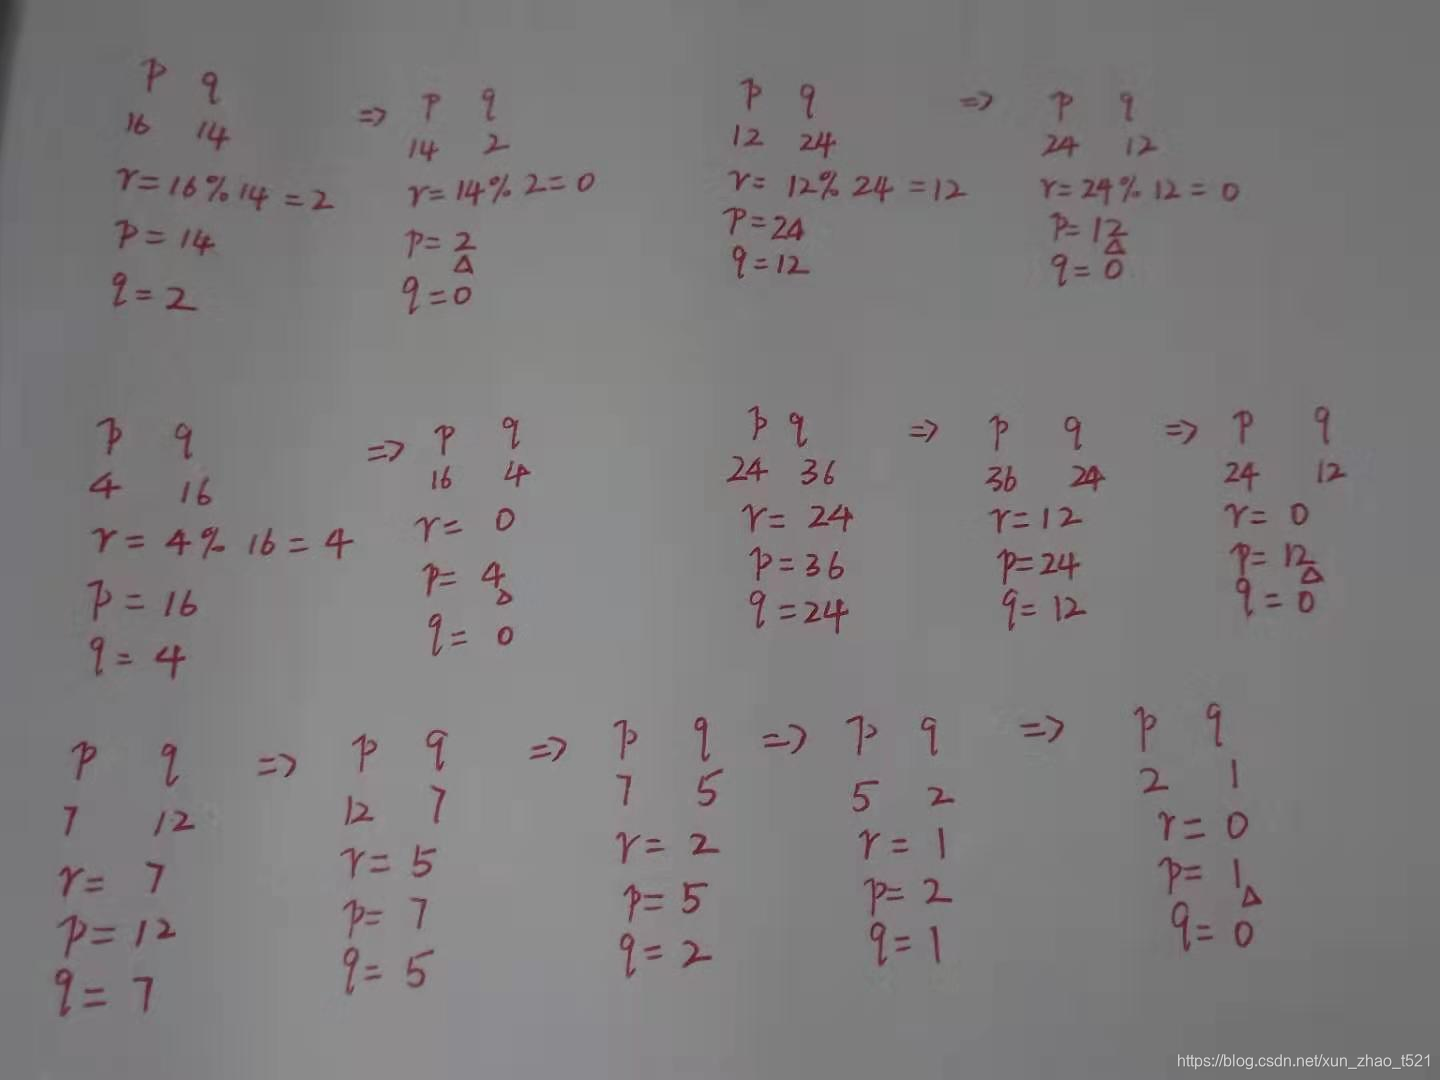 p q => p q
16 14 14 2
r=16%14=2 r=14%2=0
p=14 p=2
q=2 q=0
p q => p q
12 24 24 12
r=12%24=12 r=24%12=0
p=24 p=12
q=12 q=0
p q => p q
4 16 16 4
r=4%16=4 r=0
p=16 p=4
q=4 q=0
p q => p q => p q
24 36 36 24 24 12
r=24 r=12 r=0
p=36 p=24 p=12
q=24 q=12 q=0
p q => p q => p q => p q => p q
7 12 12 7 7 5 5 2 2 1
r=7 r=5 r=2 r=1 r=0
p=12 p=7 p=5 p=2 p=1
q=7 q=5 q=2 q=1 q=0
https://blog.csdn.net/xun_zhao_t521